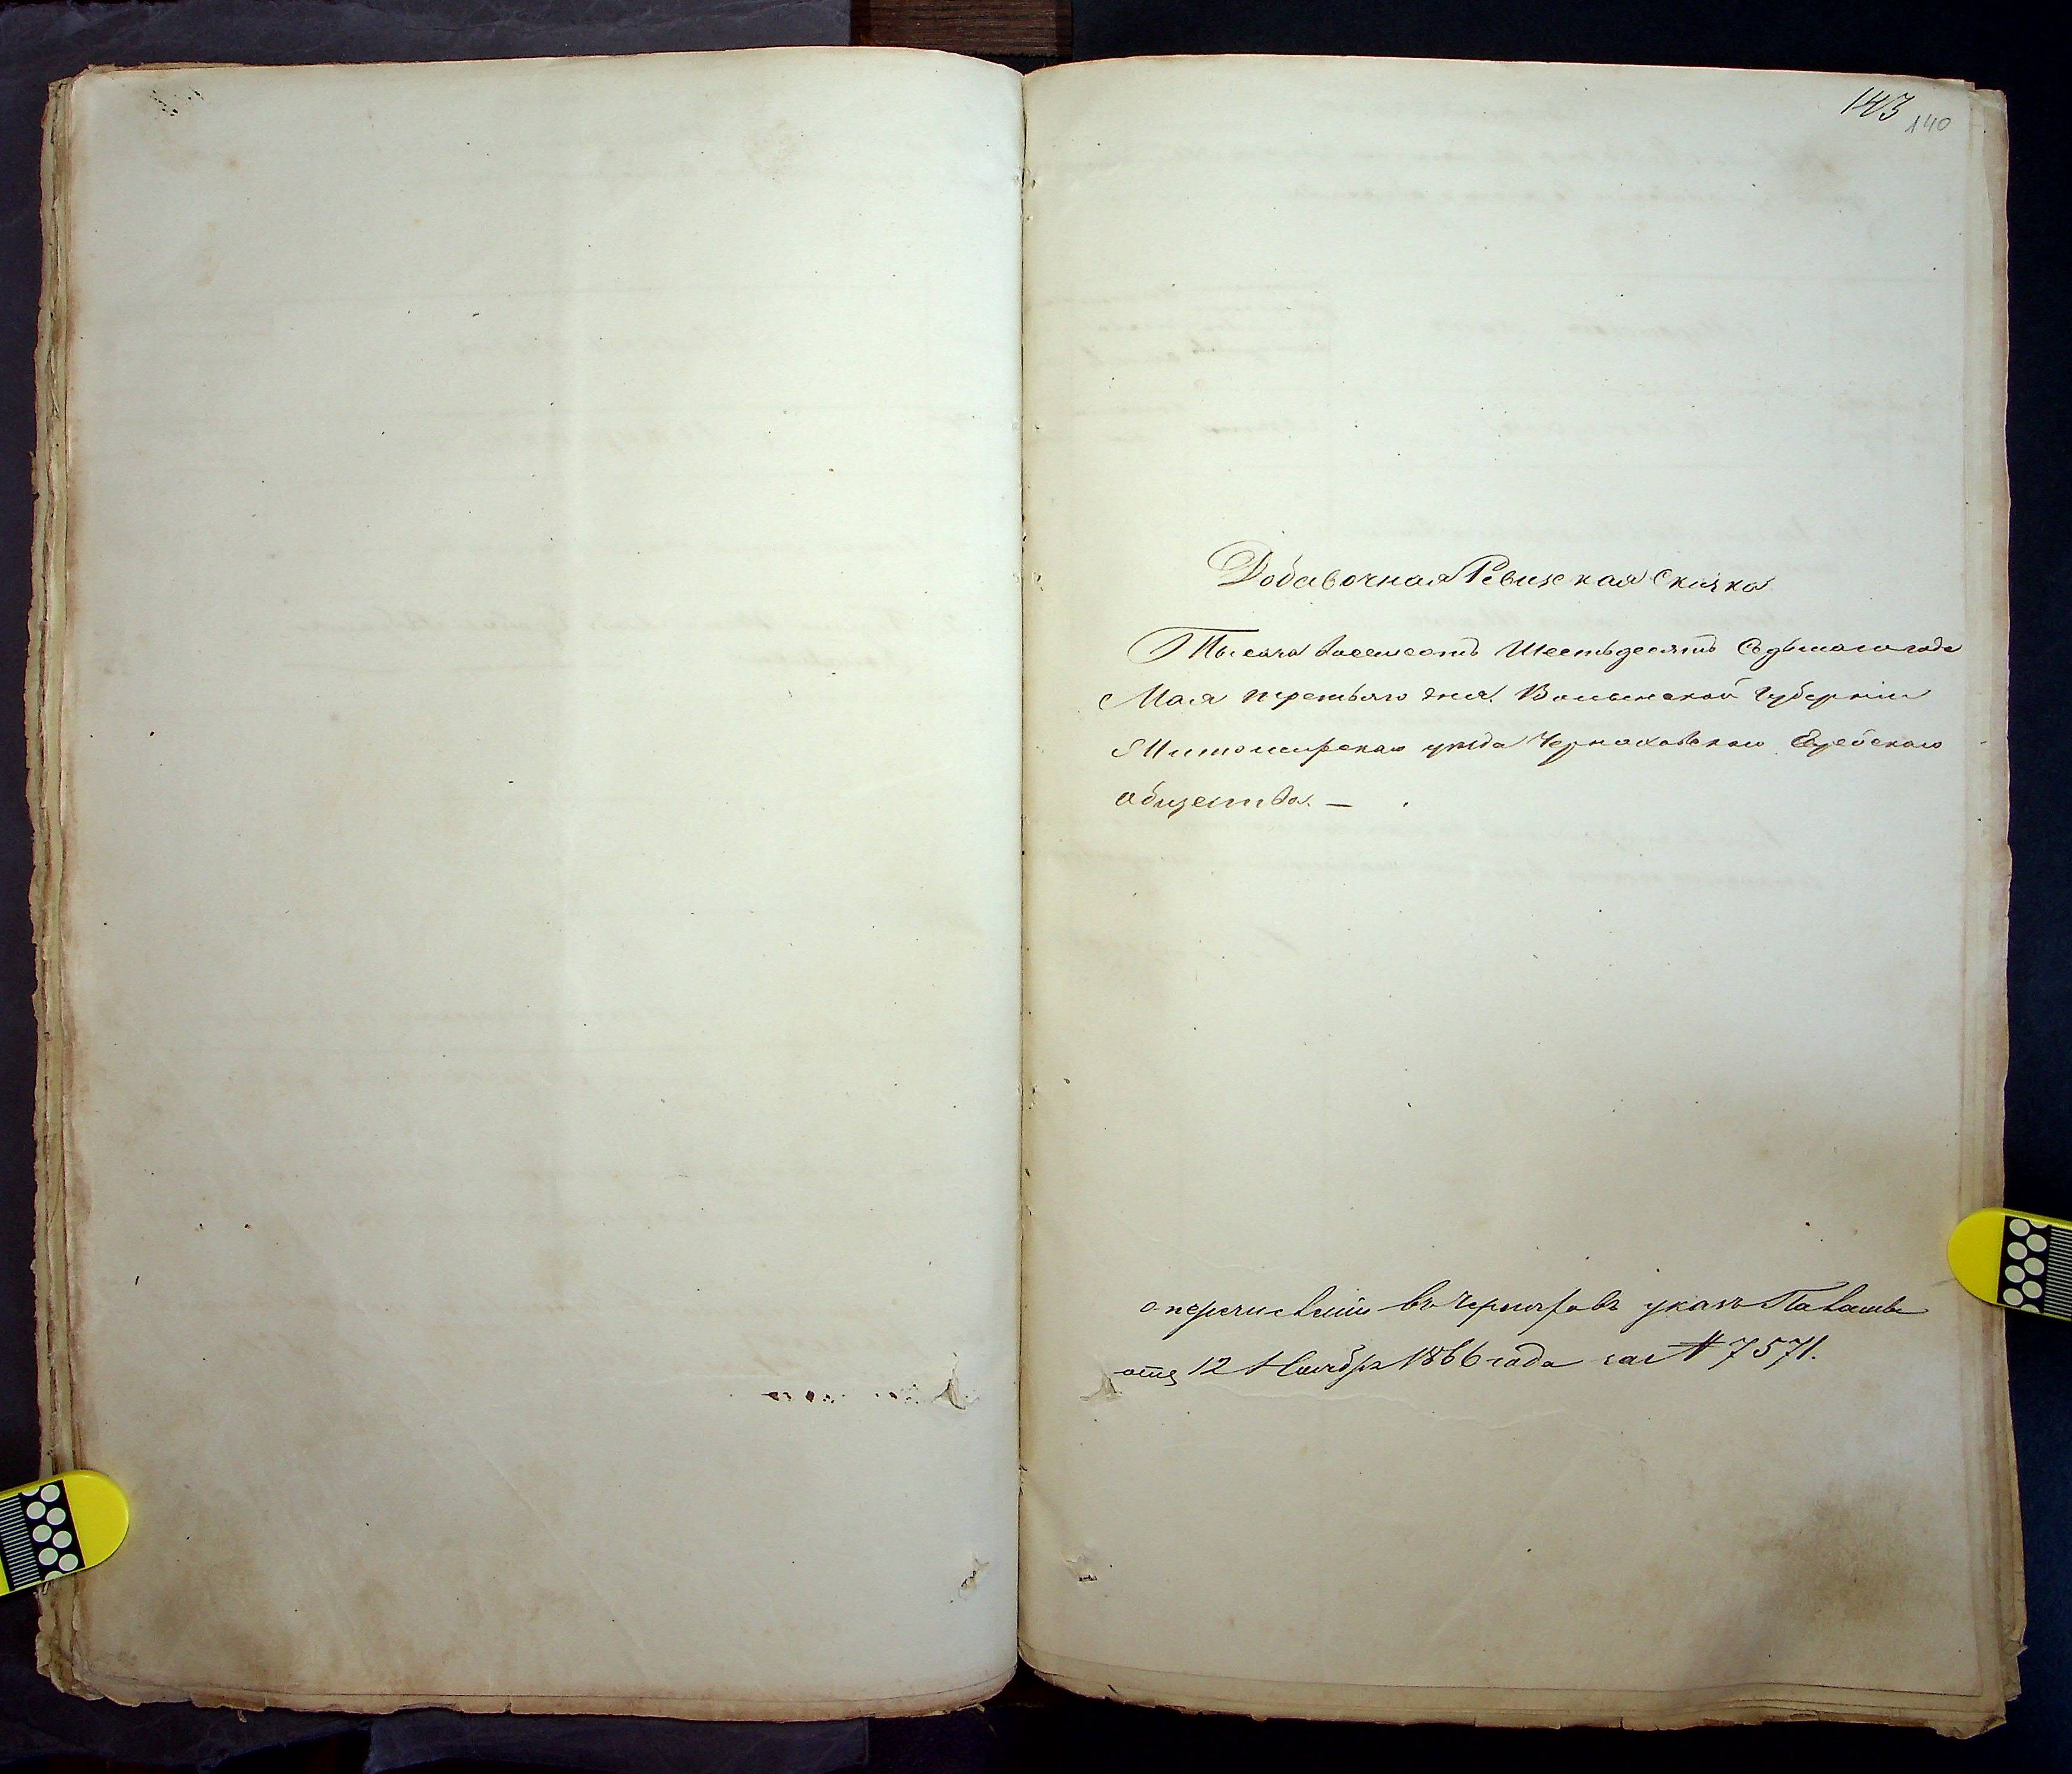 143
140
Добавочная Ревизская Сказка
Тысяча восемсотъ Шестьдесятъ Седьмаго года
Мая третьяго дня. Волынской Губерніи
Житомирскаго уѣзда Черняховскаго Еврейскаго
Общества. —
о перечисленіи въ Черняховъ указъ Палаты
отъ 12 Ноября 1866 года за № 7571.